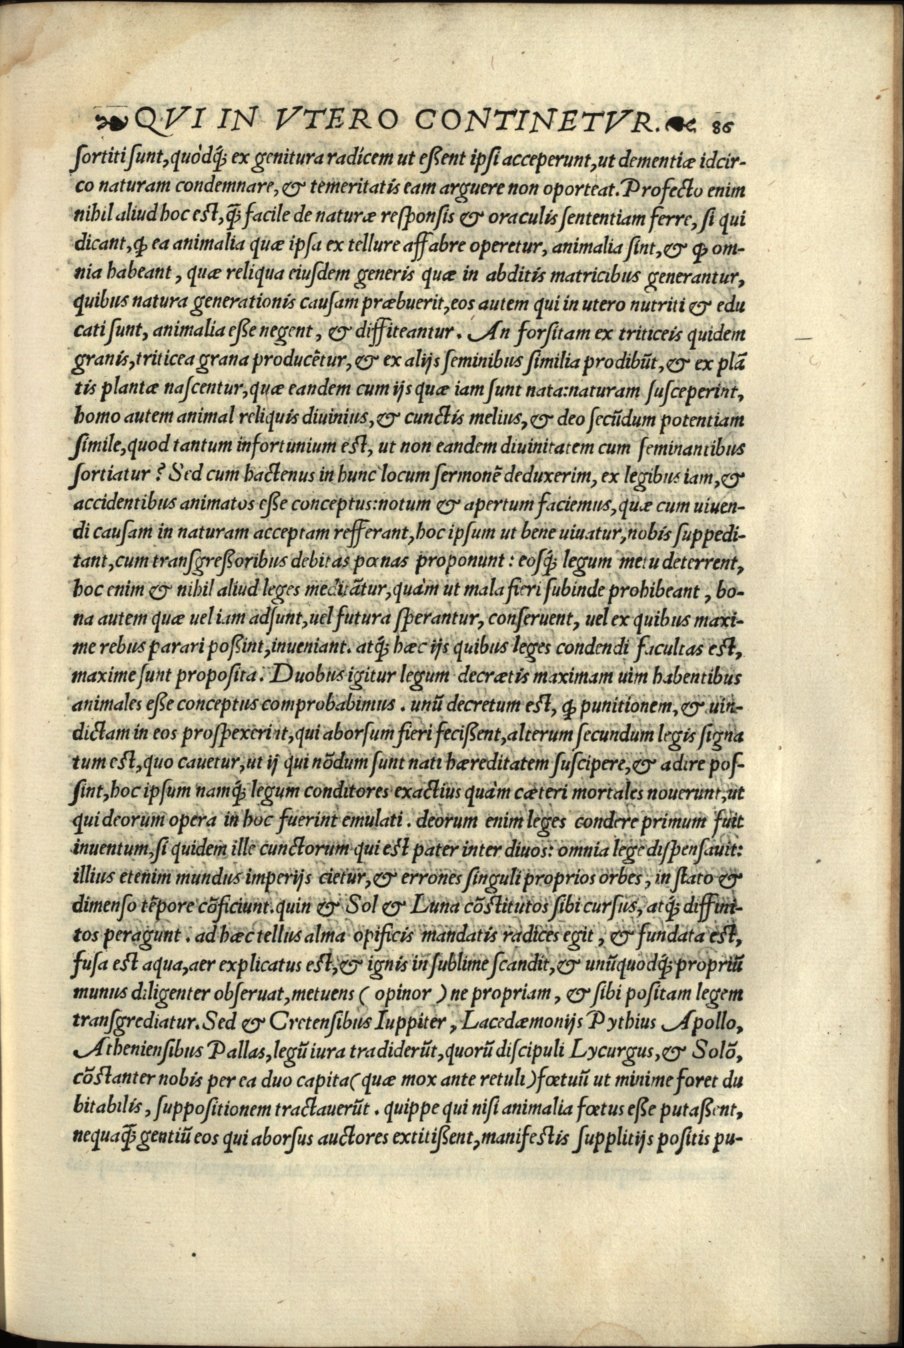 ❧ QVI IN VTERO CONTINETVR. ☙ 86
ſortiti ſunt, quòdq́; ex genitura radicem ut eßent ipſi acceperunt, ut dementiæ idcir-
co naturam condemnare, & temeritatis eam arguere non oporteat. Profecto enim
nihil aliud hoc eſt, q̃ facile de naturæ reſponſis & oraculis ſententiam ferre, ſi qui
dicant, ꝙ ea animalia quæ ipſa ex tellure affabre operetur, animalia ſint, & ꝙ om-
nia habeant, quæ reliqua eiuſdem generis quæ in abditis matricibus generantur,
quibus natura generationis cauſam præbuerit, eos autem qui in utero nutriti & edu
cati ſunt, animalia eße negent, & diffiteantur. An forſitam ex triticeis quidem
granis, triticea grana producẽtur, & ex alijs ſeminibus ſimilia prodibũt, & ex plã
tis plantæ naſcentur, quæ eandem cum ijs quæ iam ſunt nata: naturam ſuſceperint,
homo autem animal reliquis diuinius, & cunctis melius, & deo ſecũdum potentiam
ſimile, quod tantum infortunium eſt, ut non eandem diuinitatem cum ſeminantibus
ſortiatur? Sed cum hactenus in hunc locum ſermonẽ deduxerim, ex legibus iam, &
accidentibus animatos eße conceptus: notum & apertum faciemus, quæ cum uiuen-
di cauſam in naturam acceptam refferant, hoc ipſum ut bene uiuatur, nobis ſuppedi-
tant, cum transgreßoribus debitas pœnas proponunt: eosq́; legum metu deterrent,
hoc enim & nihil aliud leges meditãtur, quàm ut mala fieri ſubinde prohibeant, bo-
na autem quæ uel iam adſunt, uel futura ſperantur, conſeruent, uel ex quibus maxi-
me rebus parari poßint, inueniant. atq́; hæc ijs quibus leges condendi facultas eſt,
maxime ſunt propoſita. Duobus igitur legum decrætis maximam uim habentibus
animales eße conceptus comprobabimus. unũ decretum eſt, ꝙ punitionem, & uin-
dictam in eos proſpexerint, qui aborſum fieri fecißent, alterum ſecundum legis ſigna
tum eſt, quo cauetur, ut ij qui nõdum ſunt nati hæreditatem ſuſcipere, & adire poſ-
ſint, hoc ipſum namq́; legum conditores exactius quàm cæteri mortales nouerunt, ut
qui deorum opera in hoc fuerint emulati. deorum enim leges condere primum fuit
inuentum, ſi quidem ille cunctorum qui eſt pater inter diuos: omnia lege diſpenſauit:
illius etenim mundus imperijs cietur, & errones ſinguli proprios orbes, in ſtato &
dimenſo tẽpore cõficiunt. quin & Sol & Luna cõſtitutos ſibi curſus, atq́; diffini-
tos peragunt. ad hæc tellus alma opificis mandatis radices egit, & fundata eſt,
fuſa eſt aqua, aer explicatus eſt, & ignis in ſublime ſcandit, & unũquodq́; propriũ
munus diligenter obſeruat, metuens ( opinor ) ne propriam, & ſibi poſitam legem
transgrediatur. Sed & Cretenſibus Iuppiter, Lacedæmonijs Pythius Apollo,
Athenienſibus Pallas, legũ iura tradiderũt, quorũ diſcipuli Lycurgus, & Solõ,
cõſtanter nobis per ea duo capita (quæ mox ante retuli) fœtuũ ut minime foret du
bitabilis, ſuppoſitionem tractauerũt. quippe qui niſi animalia fœtus eße putaßent,
nequaq̃; gentiũ eos qui aborſus auctores extitißent, manifeſtis ſupplitijs poſitis pu-